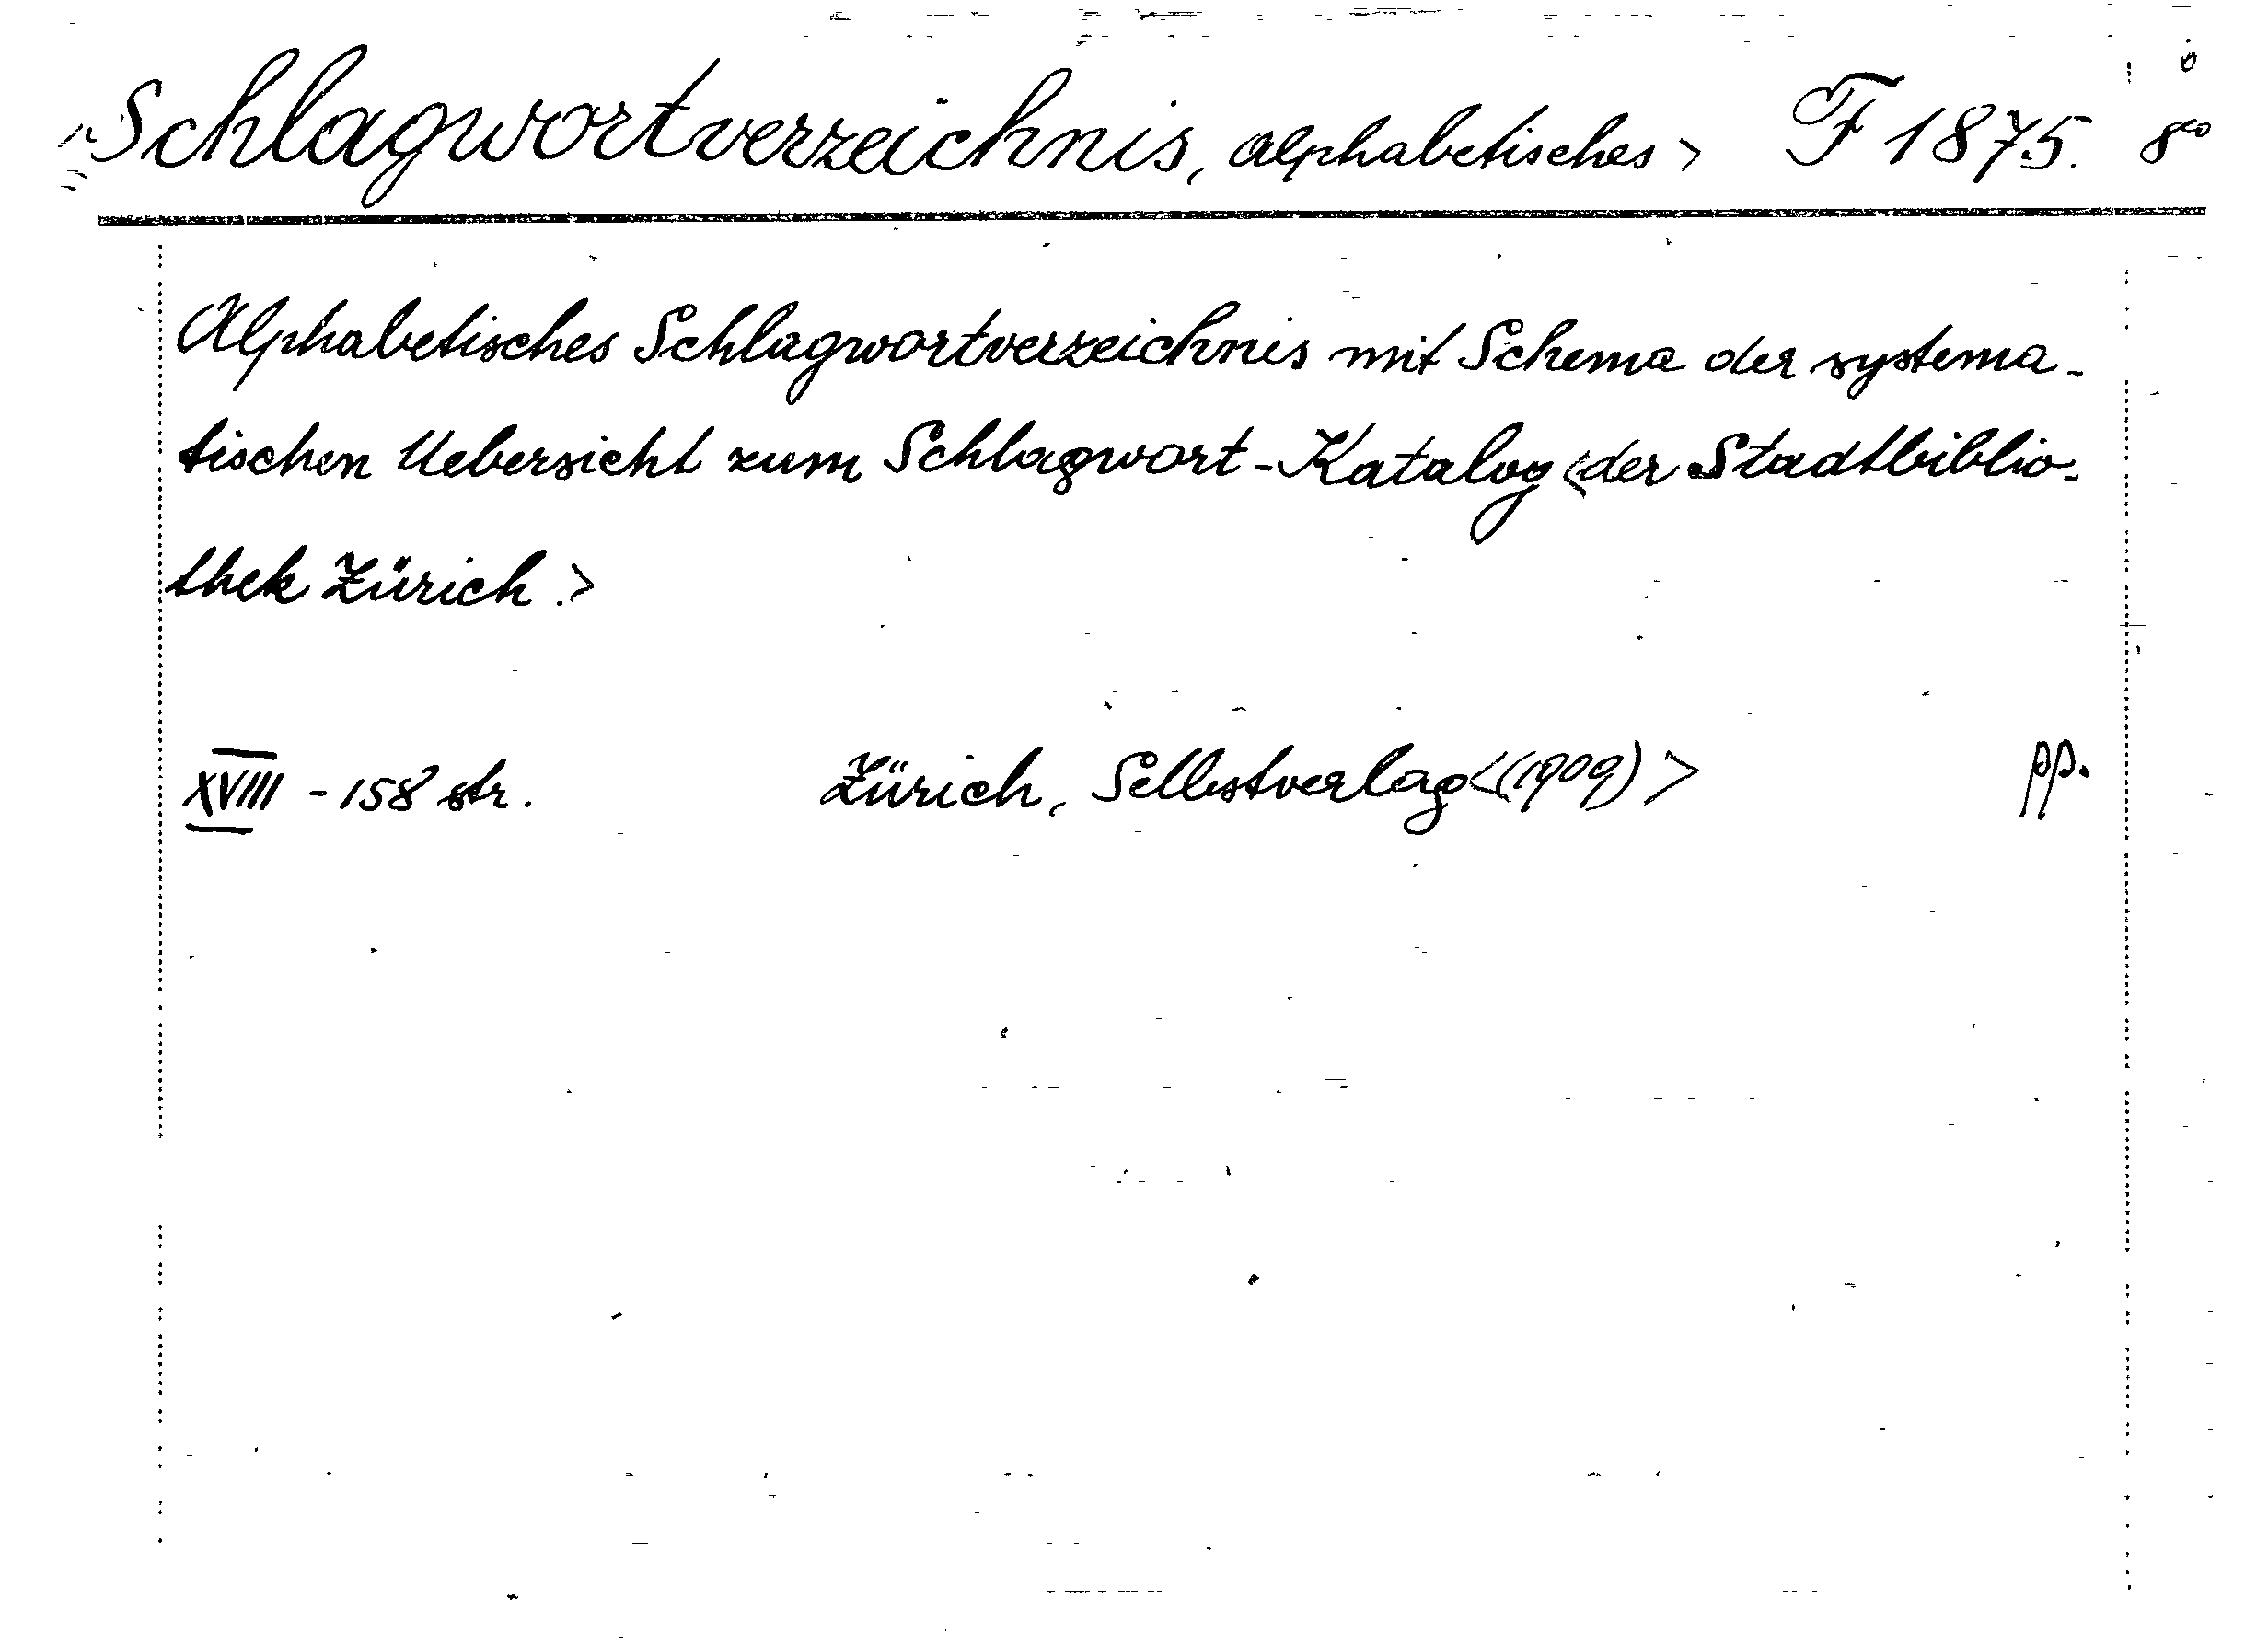 Schlagwortverzeichnis, alphabetisches > F 1875. 8°
Alphabetisches Schlagwortverzeichnis mit Schema der systema-
tischen Uebersicht zum Schlagwort-Katalog <der Stadtbiblio-
thek Zürich.>
XVIII - 158 str. Zürich, Selbstverlag <(1909)> pp.